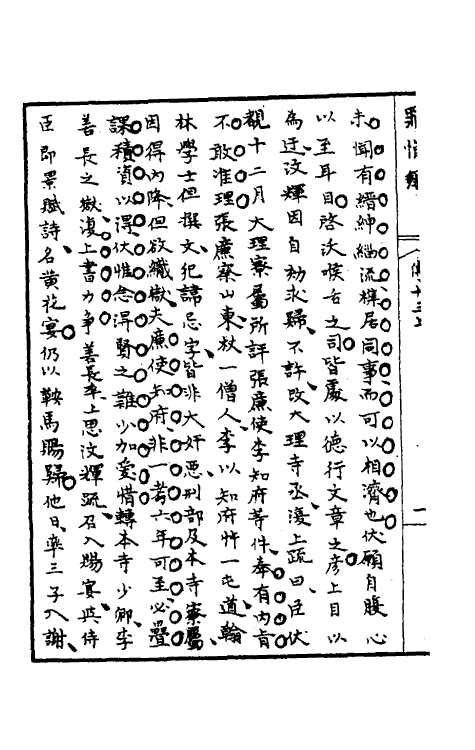 未聞有縉紳緇流襍居同事而可以相濟也伏願自腹心
以至耳目啓沃喉舌之司皆處以德行文章之彥上目以
為迂汶輝因自劾求歸不許改大理寺丞復上疏曰臣伏
覩十二月大理寮屬所評張廉使李知府等件奉有內旨
不敢准理張廉察山東杖一僧人李以知府忤一屯道翰
林學士但撰文犯諱忌字皆非大奸惡刑部及本寺寮屬
因得內降但欲織獄夫廉使知府非一考六年可至必疊
課積資以得伏惟念得賢之難少加愛惜轉本寺少卿李
善長之獄復上書力爭善長卒上思汶輝疏召入賜宴與侍
臣即景賦詩名黃花宴仍以鞍馬賜歸他日率三子入謝